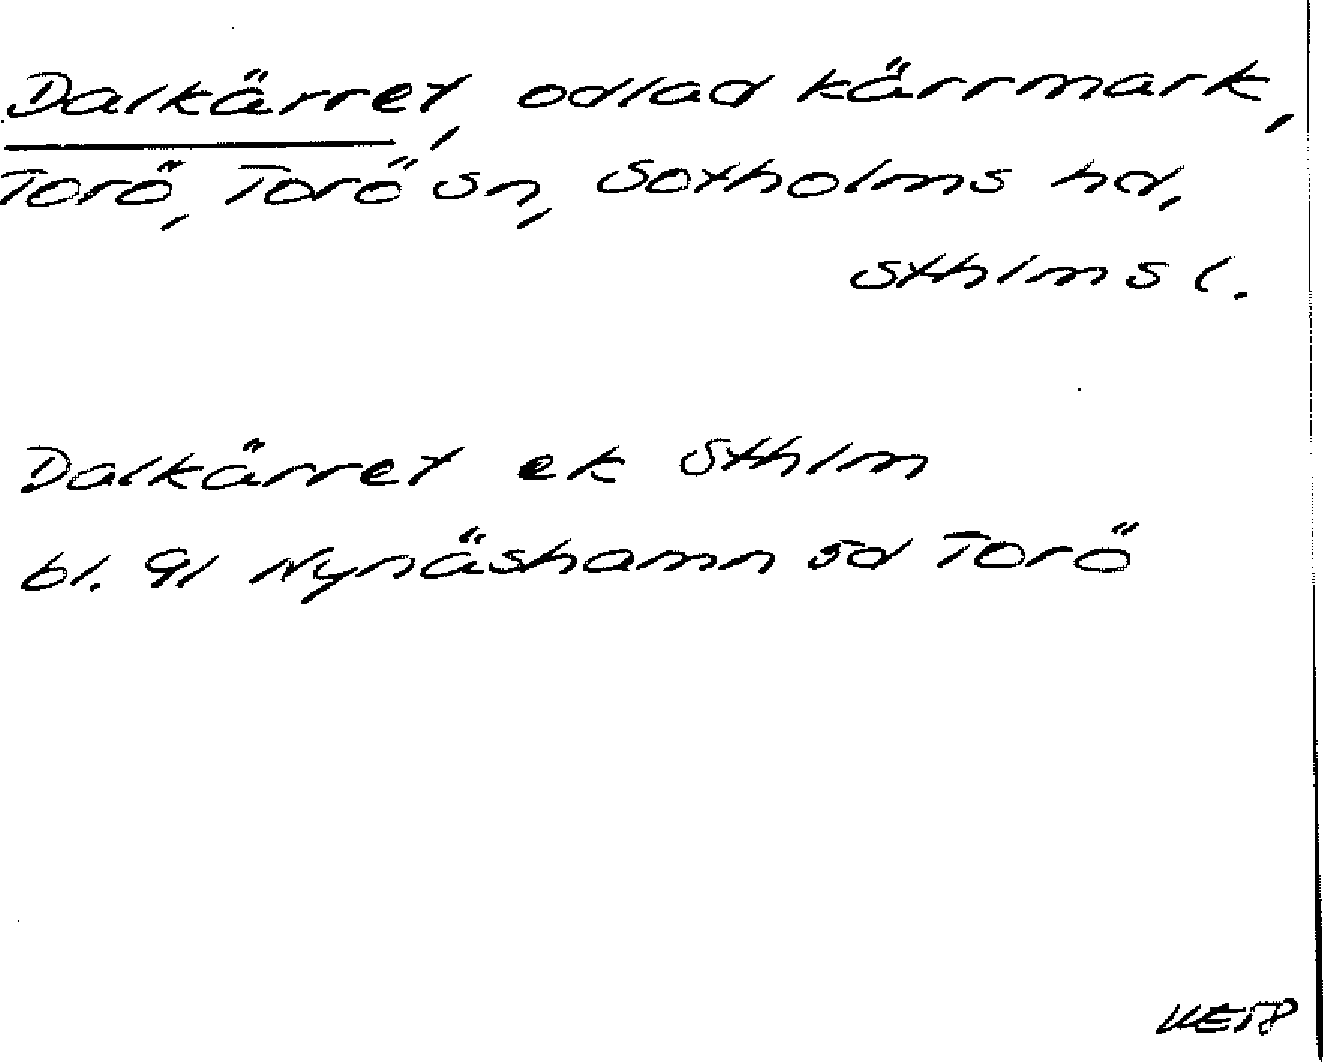 Dalkärret, odlad kärrmark,
Torö, Torö sn, Sotholms hd,
Sthlms l.
Dalkärret ek Sthlm
bl. 91 Nynäshamn 5d Torö